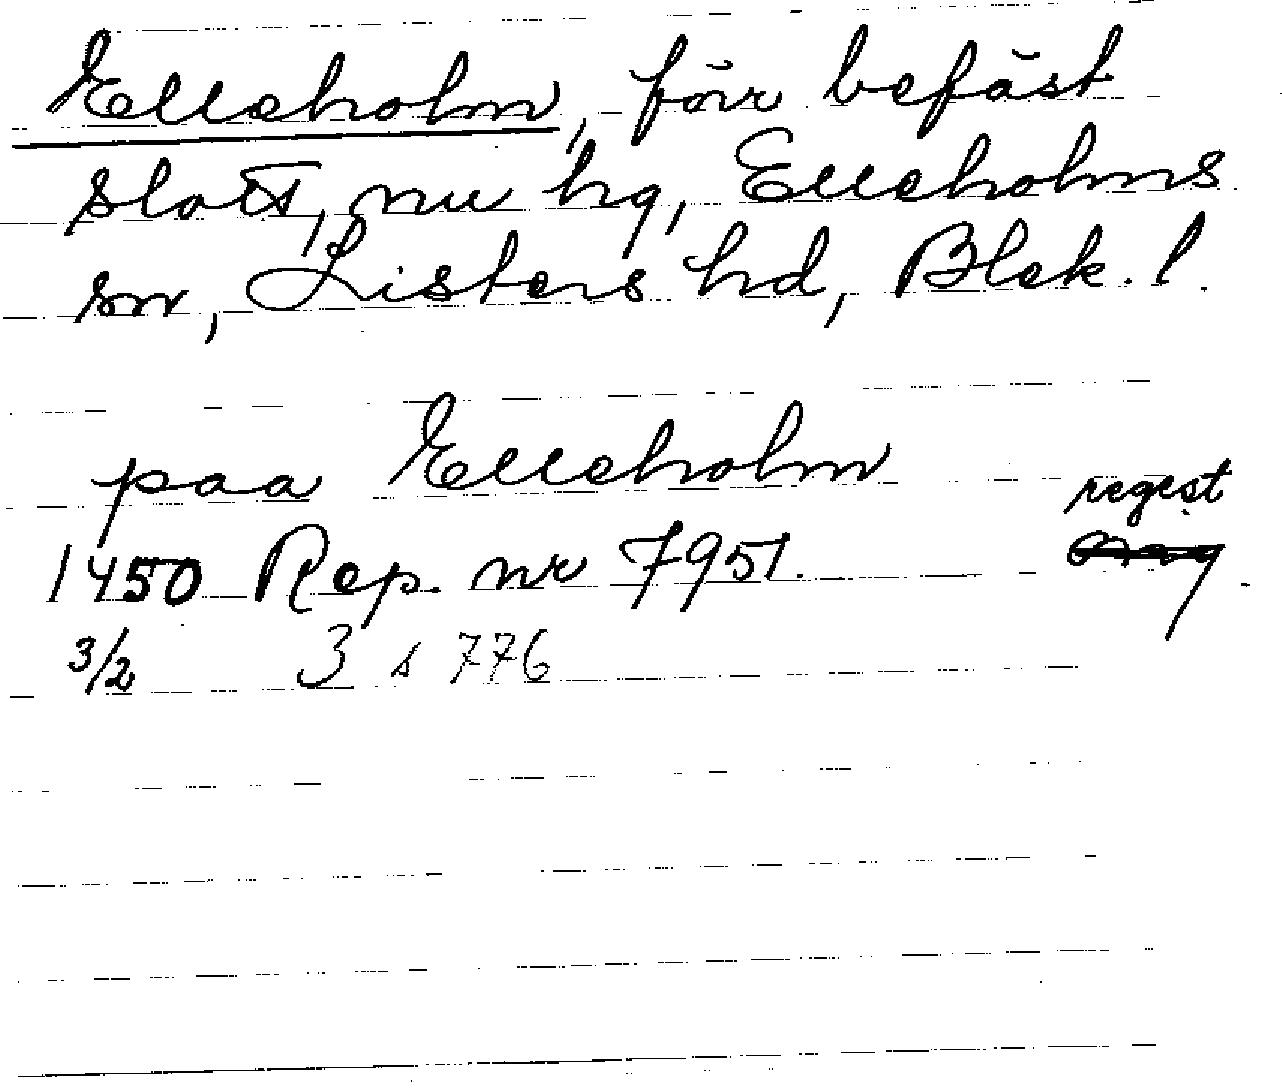 Elleholm, förr befäst
slott, nu hg, Elleholms
sn, Listers hd, Blek. l.
paa Elleholm
regest
1450 Rep. nr 7951.
3/2 3 s 776